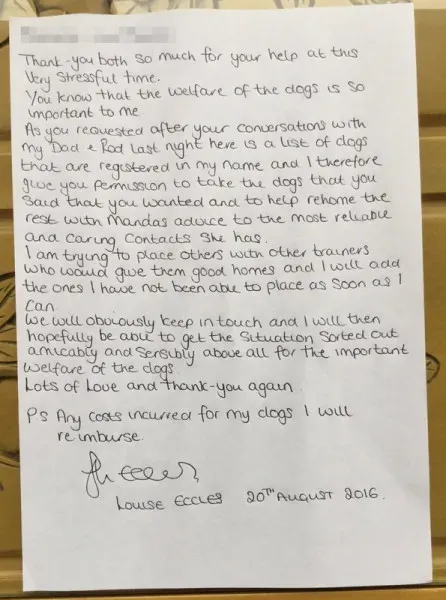 Thank-you both so much for your help at this
Very Stressful time.
You know that the welfare of the dogs is so
important to me
As you requested after your conversations with
my Dad & Rod last night here is a list of dogs
that are registered in my name and I therefore
give you permission to take the dogs that you
said that you wanted and to help rehome the
rest with Mandas advice to the most reliable
and caring contacts she has.
I am trying to place others with other trainers
who would give them good homes and I will add
the ones I have not been able to place as soon as I
can.
We will obviously keep in touch and I will then
hopefully be able to get the situation sorted out
amicably and sensibly above all for the important
welfare of the dogs
Lots of Love and thank-you again
Ps Any costs incurred for my dogs I will
reimburse.
LOUISE ECCLES 20TH AUGUST 2016.